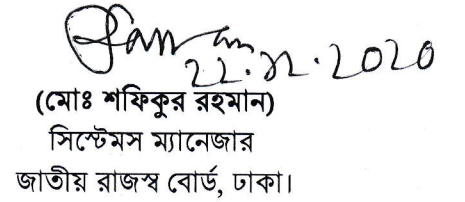 22.12.2020
(মোঃ শফিকুর রহমান)
সিস্টেমস ম্যানেজার
জাতীয় রাজস্ব বোর্ড, ঢাকা।